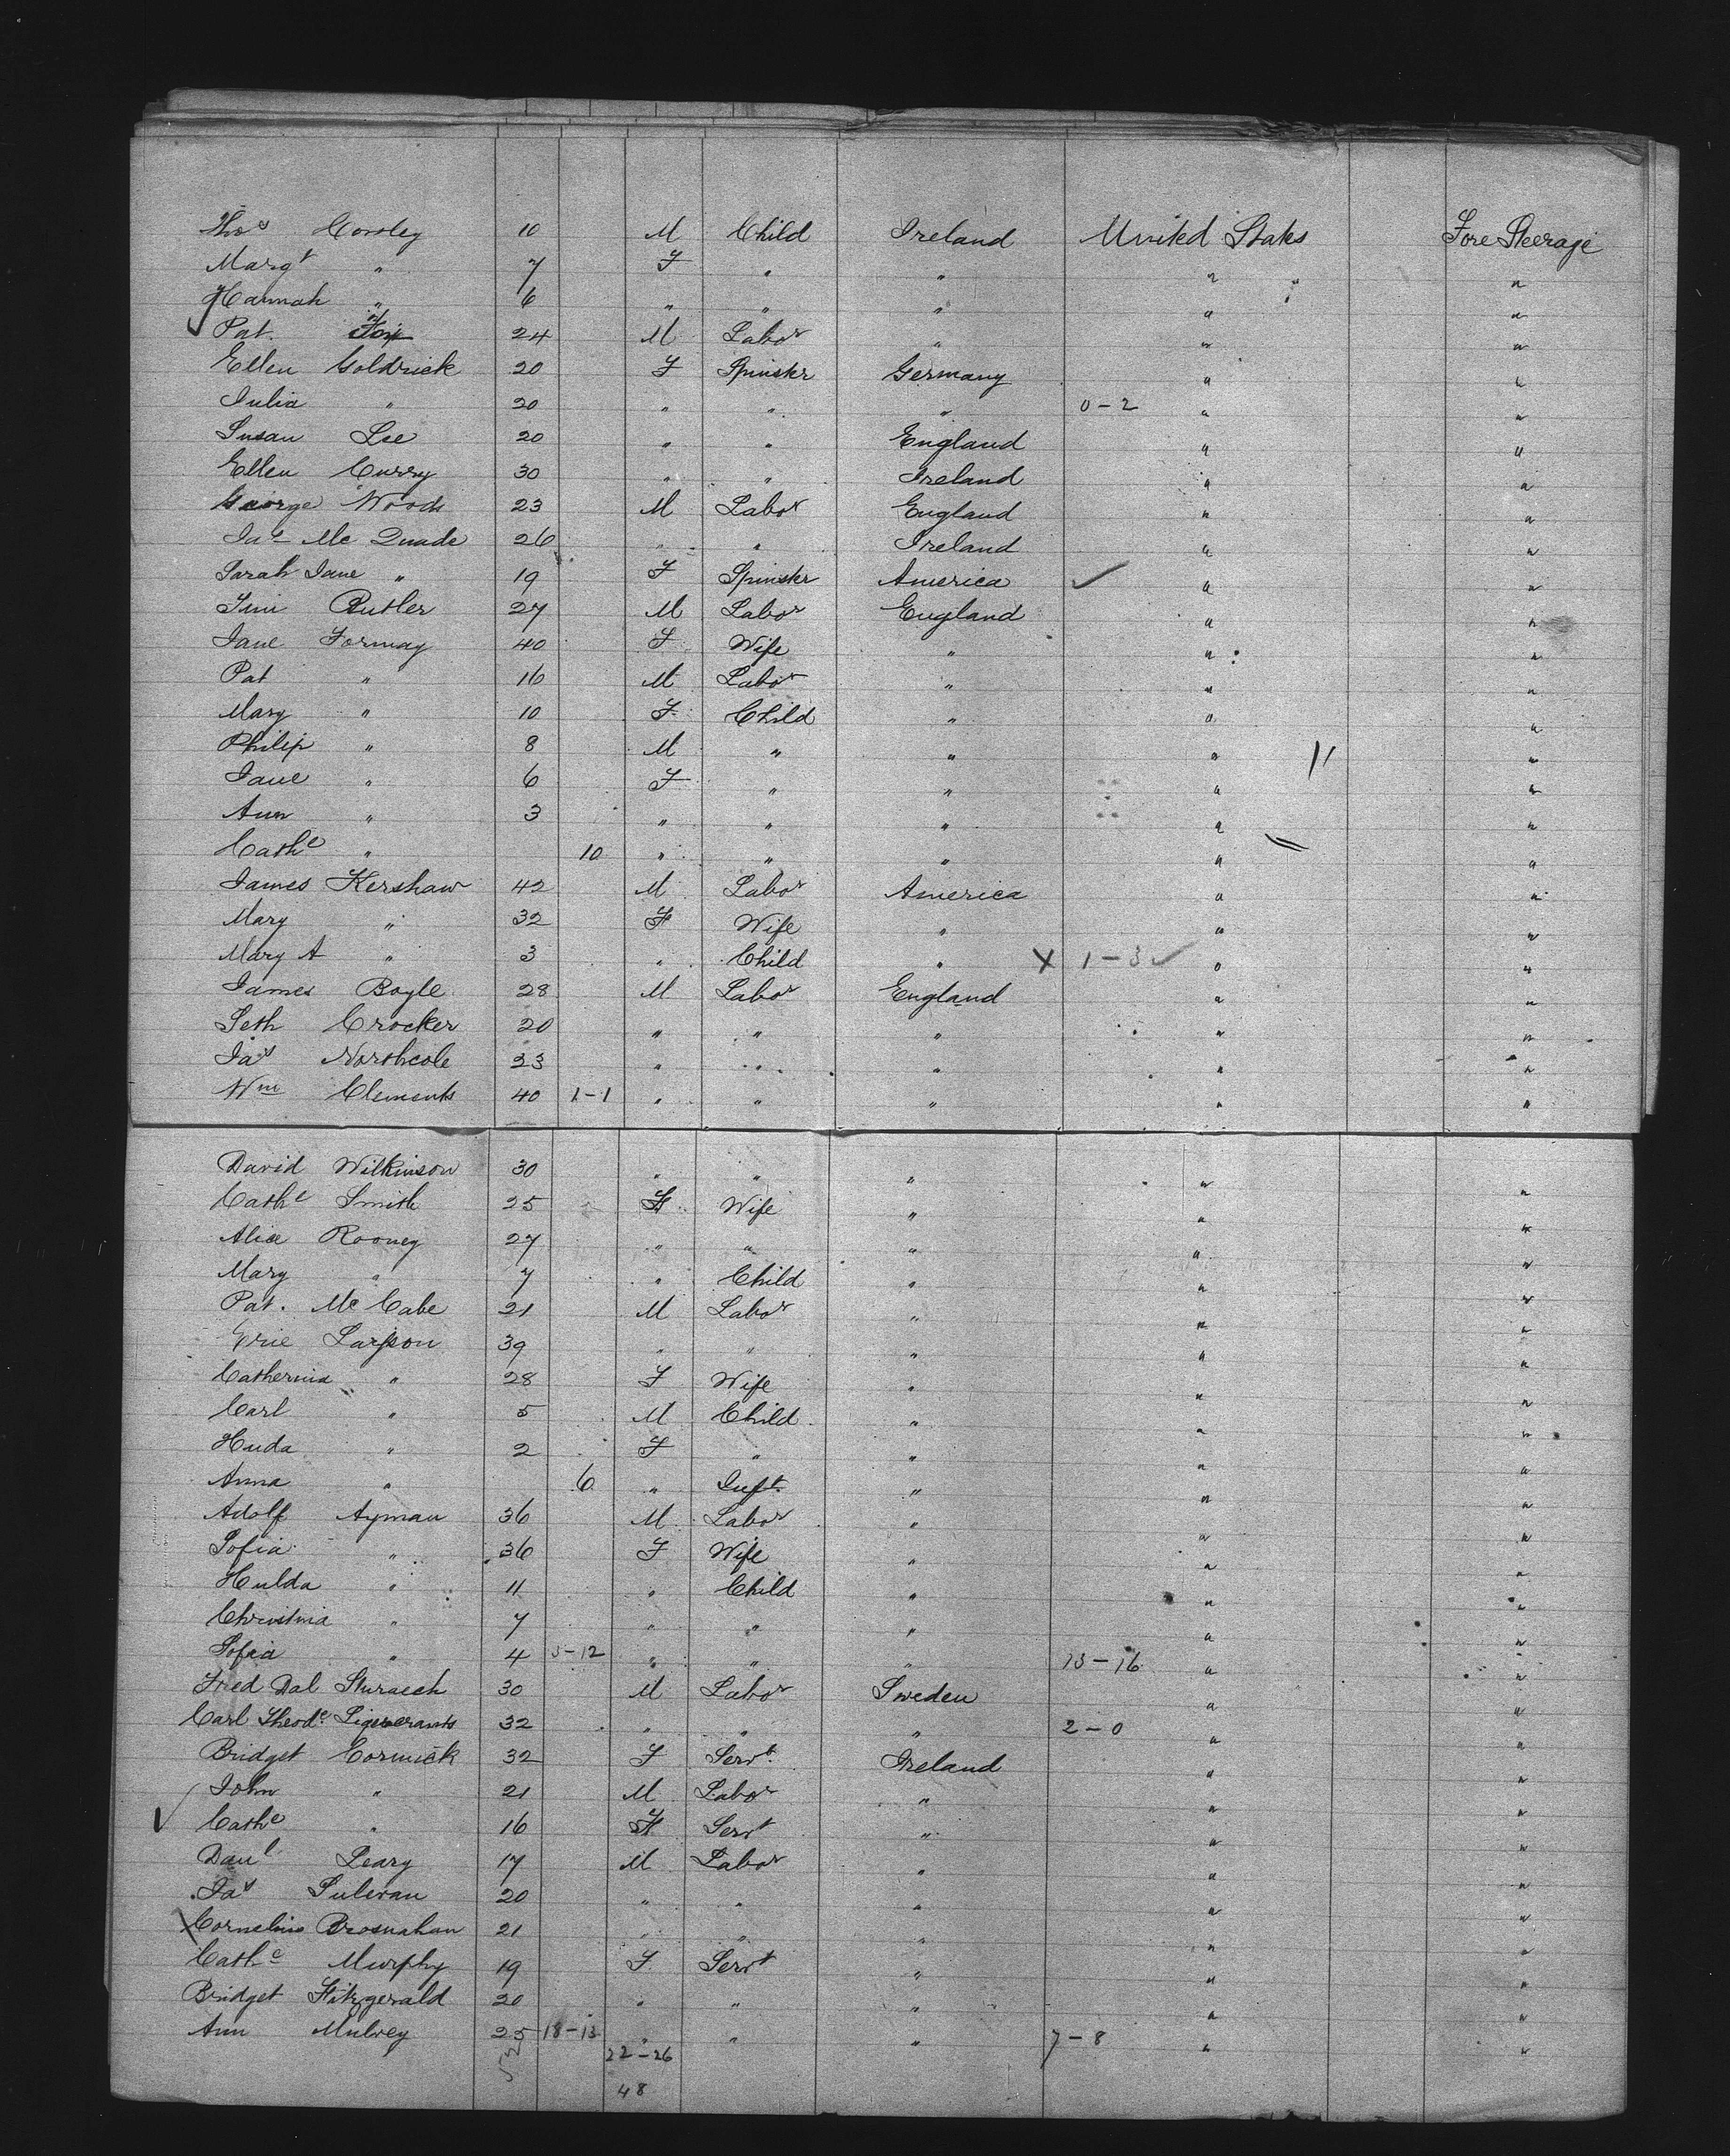 Thos Consley 10 M Child Ireland United States Fore Steerage
Margt " 7 F " " " "
Hannah " 6 " " " " "
Pat. Fox 24 M Labor " " "
Ellen Goldrick 20 F Spinster Germany " "
Julia " 20 " " " 0-2 " "
Susan Lee 20 " " England " "
Ellen Curry 30 " " Ireland " "
George Woods 23 M Labor England " "
Jae Mc Quade 26 " " Ireland " "
Sarah Jane " 19 F Spinster America ✓ " "
Jim Butler 27 M Labor England " "
Jane Formay 40 F Wife " " "
Pat " 16 M Labor " " "
Mary " 10 F Child " " "
Philip " 8 M " " " "
Jane " 6 F " " " "
Ann " 3 " " " " "
Cathe " 10 " " " " "
James Kershaw 42 M Labor America " "
Mary " 32 F Wife " " "
Mary A " 3 " Child " X 1-3 ✓ " "
James Boyle 28 M Labor England " "
Seth Crocker 20 " " " " "
Jas Northcole 23 " " " " "
Wm Clements 40 1-1 " " " " "
David Wilkinson 30 " " " " "
Cathe Smith 25 F Wife " " "
Alice Rooney 27 " " " " "
Mary " 7 " Child " " "
Pat. Mc Cabe 21 M Labor " " "
Eric Larsson 39 " " " " "
Catherina " 28 F Wife " " "
Carl " 5 M Child " " "
Huda " 2 F " " " "
Anna " 6 " Inft. " " "
Adolf Ayman 36 M Labor " " "
Sofia " 36 F Wife " " "
Hulda " 11 " Child " " "
Christina " 7 " " " " "
Sofia " 4 5-12 " " " 13-16 " "
Fred Dal Sturaech 30 M Labor Sweden " "
Carl Theode 32 " " " 2-0 " "
Bridget Cormick 32 F Servt. Ireland " "
John " 21 M Labor " " "
Cathe " 16 F Servt " " "
Danl Leary 17 M Labor " " "
Jas Sulevan 20 " " " " "
Cornelius Brosnahan 21 " " " " "
Cathe Murphy 19 F Servt " " "
Bridget Fitzgerald 20 " " " " "
Ann Mulvey 25 18-13 " " " 7-8 " "
52 22-26
48